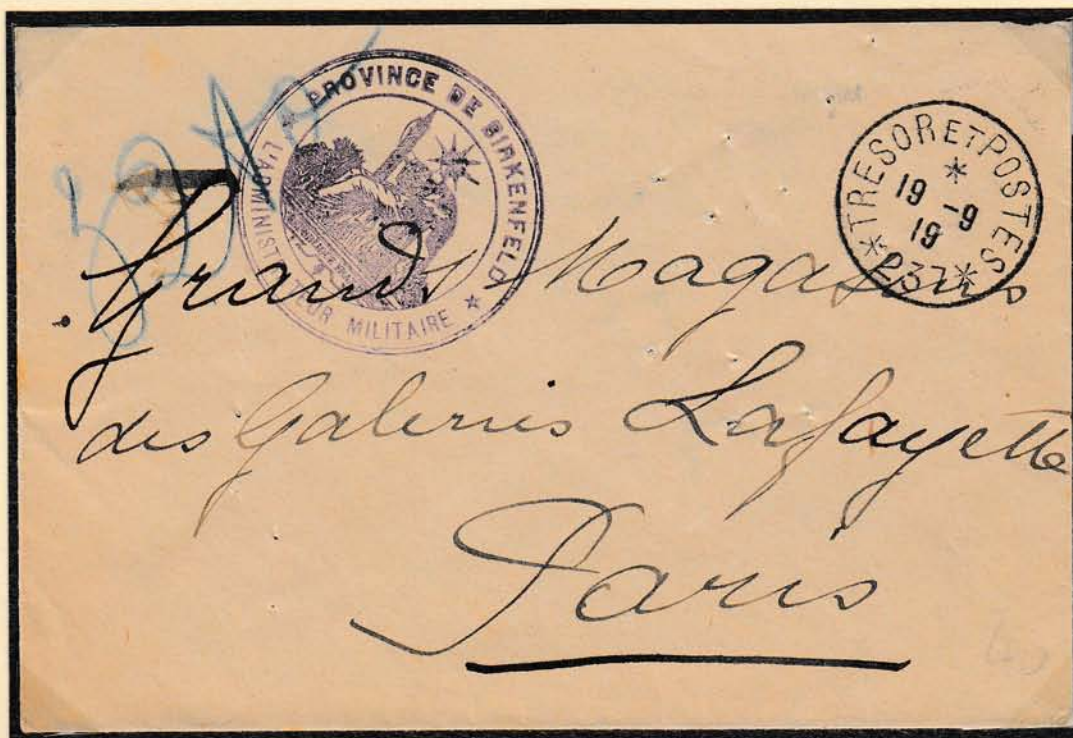 PROVINCE DE BIRKENFELD
L'ADMINIST UR MILITAIRE
*TRESOR ET POSTES*
19 -9
19
237
Grands Magasins
des Galeries Lafayette
Paris